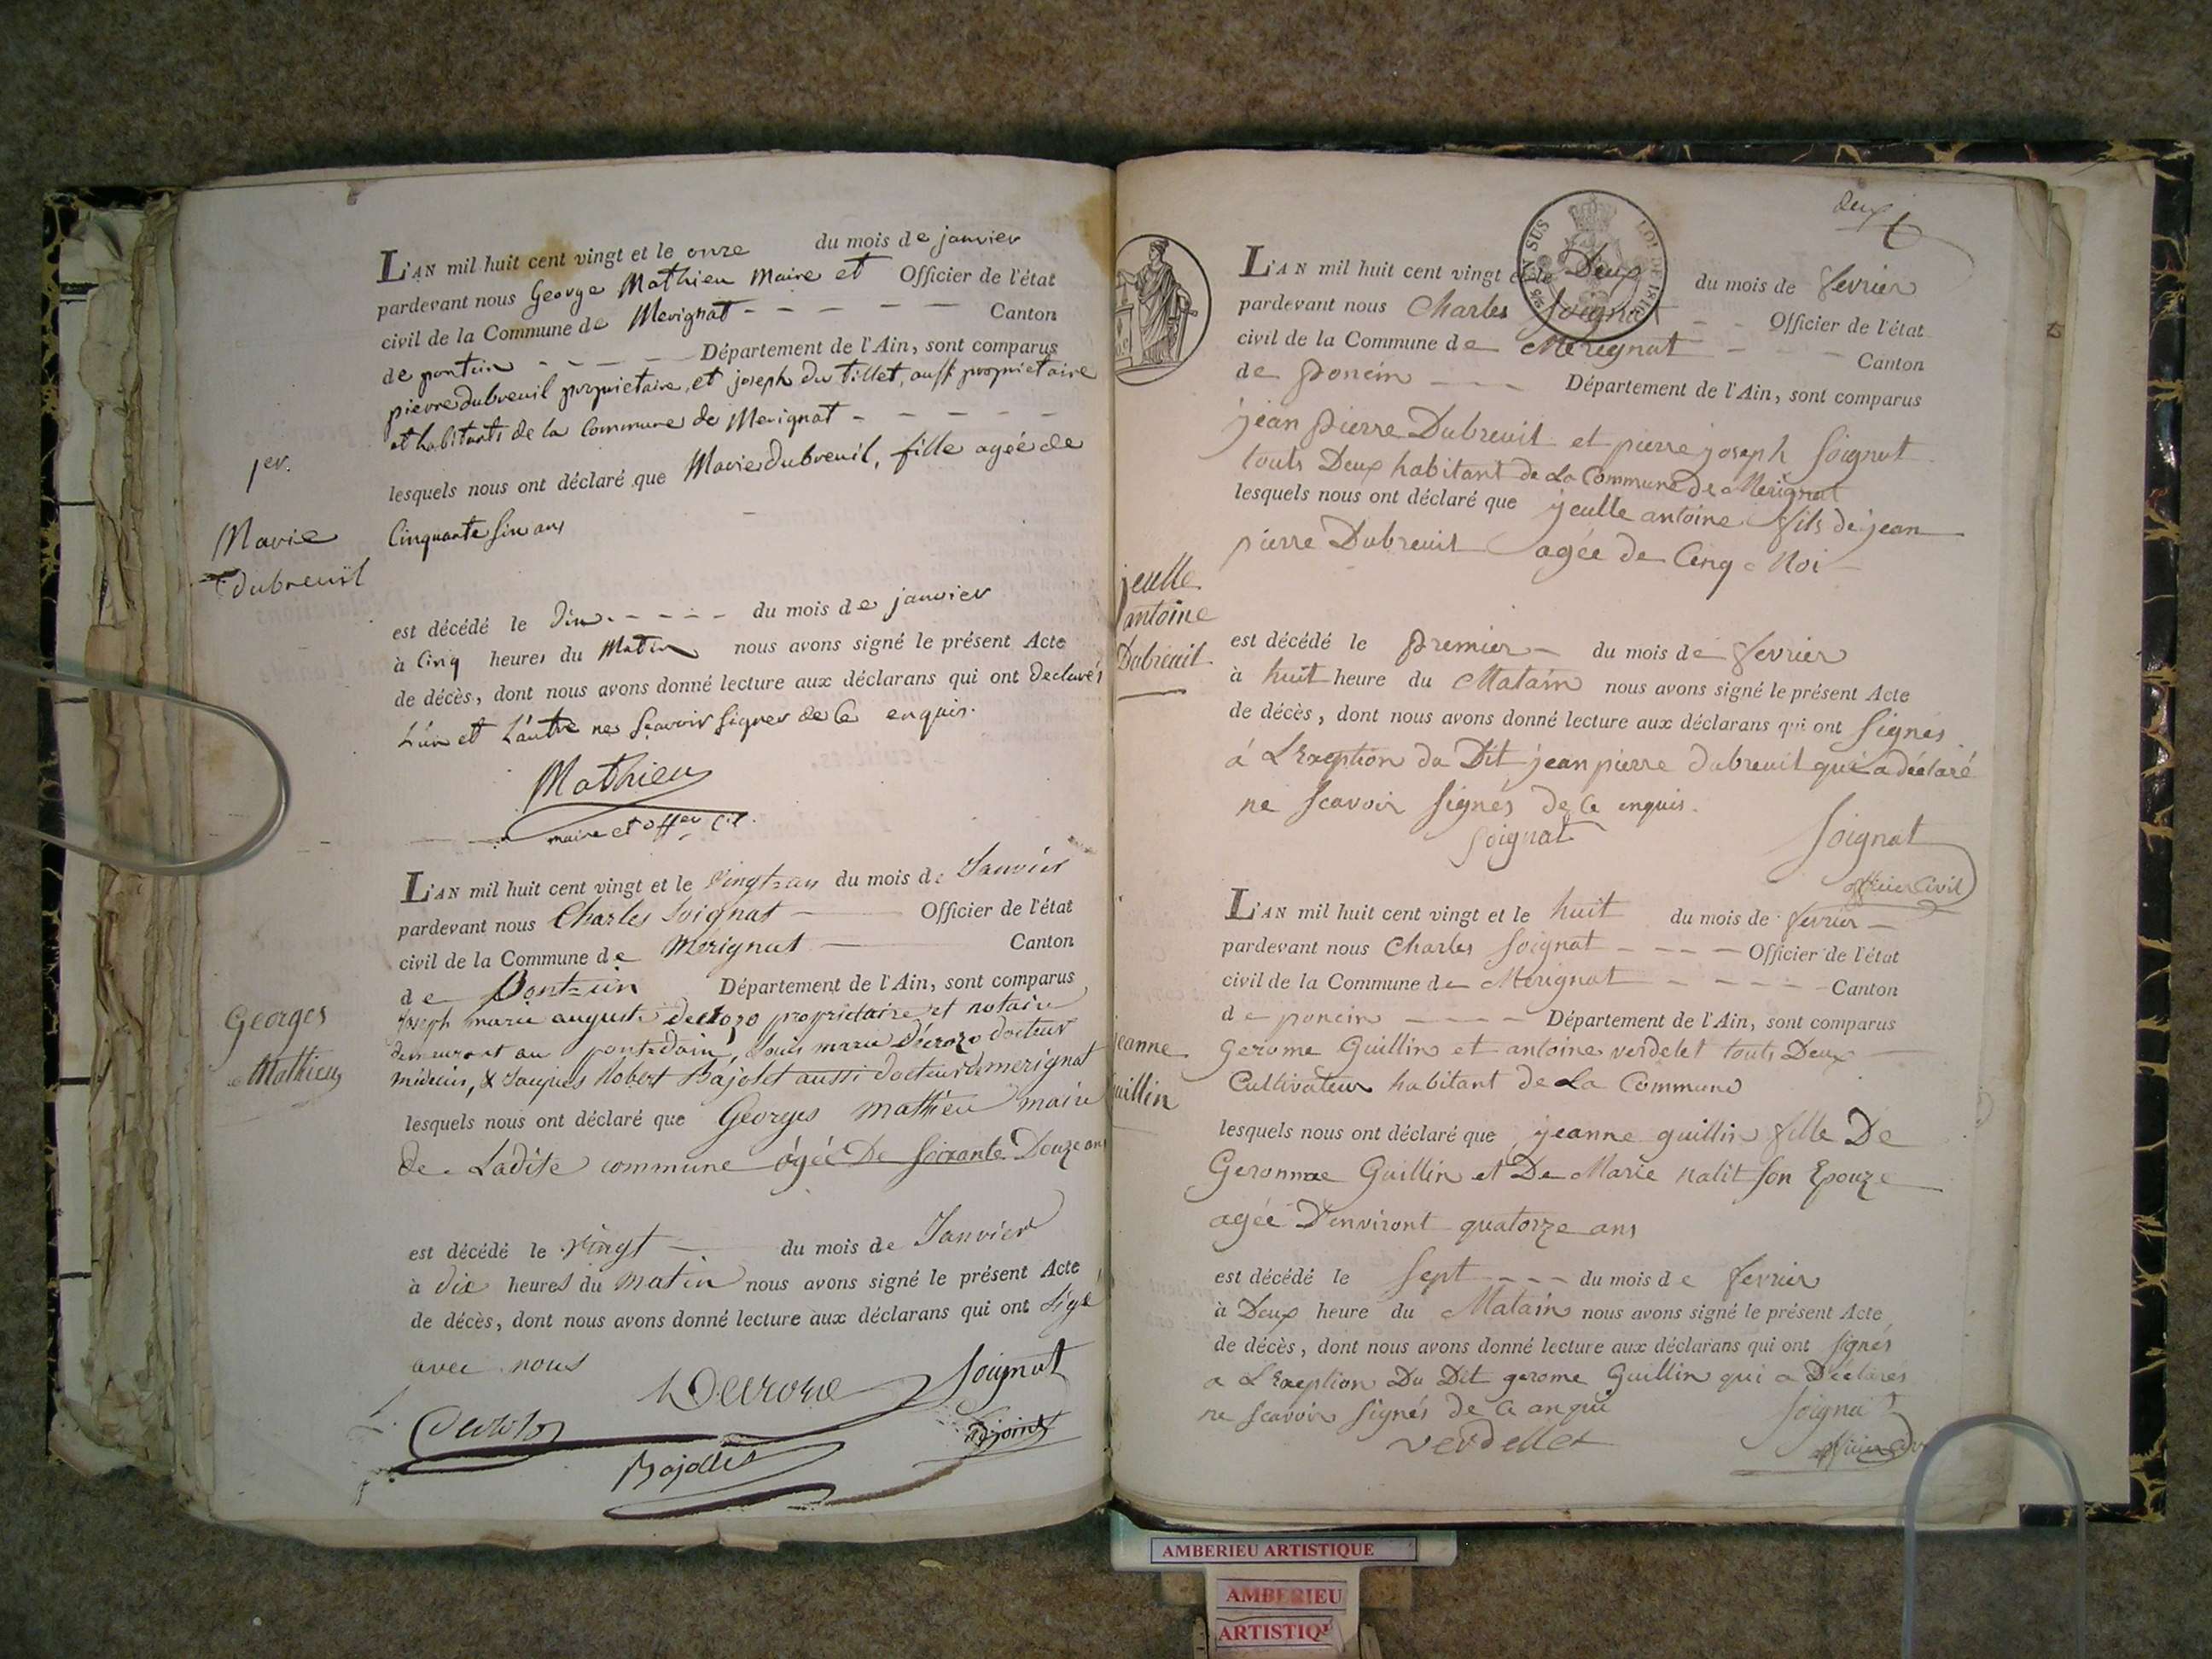 L'AN mil huit cent vingt et le onze du mois de janvier
pardevant nous George Mathieu Maire et Officier de l'état
civil de la Commune de Merignat - - - - - Canton
de pontin - - - - Département de l'Ain, sont comparus
pierre dubreuil proprietaire, et joseph du tillet, aussi proprietaire
et habitants de la Commune de Merignat - - - - -
lesquels nous ont déclaré que Marie dubreuil, fille agée de
Cinquante six ans
1er.
Marie
dubreuil
est décédé le Dix - - - - - du mois de janvier
à Cinq heures du Matin nous avons signé le présent Acte
de décès, dont nous avons donné lecture aux déclarans qui ont declarés
L'un et L'autre ne Scavoir signer de Ce enquis.
Mathieu
maire et offer Cil.
L'AN mil huit cent vingt et le vingt-un du mois de Janvier
pardevant nous Charles Soignat Officier de l'état
civil de la Commune de Mérignat Canton
de Pont-ain Département de l'Ain, sont comparus
Joseph marie auguste decrozo proprietaire et notaire
demeurant au pont-dain, Louis marie Décrozo docteur
médecin, & Jacques Robert Bajolet aussi docteur de merignat
lesquels nous ont déclaré que Georges mathieu maire
de Ladite commune âgée De Soixante Douze ans
Georges
Mathieu
est décédé le vingt du mois de Janvier
à dix heures du matin nous avons signé le présent Acte
de décès, dont nous avons donné lecture aux déclarans qui ont sigé
avec nous
Soignat
adjoint
Bajollet
deux
L'AN mil huit cent vingt et le Deux du mois de fevrier
pardevant nous Charles Soignat - - Officier de l'état
civil de la Commune de Merignat - - - Canton
de poncin - - - Département de l'Ain, sont comparus
jean pierre Dubreuil et pierre joseph Soignat
touts Deux habitant de La Commune De Merignat
lesquels nous ont déclaré que jeulle antoine fils de jean
pierre Dubreuil agée de Cinq Moi
jeulle
antoine
Dubreuil
est décédé le premier - du mois de fevrier
à huit heure du Matain nous avons signé le présent Acte
de décès, dont nous avons donné lecture aux déclarans qui ont signés
á L'Exeption du Dit jean pierre dubreuil qui a déclaré
ne scavoir signés de Ce enquis.
Soignat Soignat
officier Civil
L'AN mil huit cent vingt et le huit du mois de fevrier -
pardevant nous Charles Soignat - - - Officier de l'état
civil de la Commune de Merignat - - - - - Canton
de poncin - - - - Département de l'Ain, sont comparus
Gerome Guillin et antoine verdelet touts Deux
Cultivateur habitant de La Commune
jeanne
Guillin
lesquels nous ont déclaré que jeanne guillin fille De
Geromme Guillin et De Marie nalit son Epouze
agée D'environt quatorze ans
est décédé le Sept - - - du mois de fevrier
à Deux heure du Matain nous avons signé le présent Acte
de décès, dont nous avons donné lecture aux déclarans qui ont signés
a L'Exeption Du Dit gerome Guillin qui a Déclarés
ne scavoir signés de Ce anqui
verdellet Soignat
officier
AMBERIEU ARTISTIQUE
AMBERIEU
ARTISTIQ